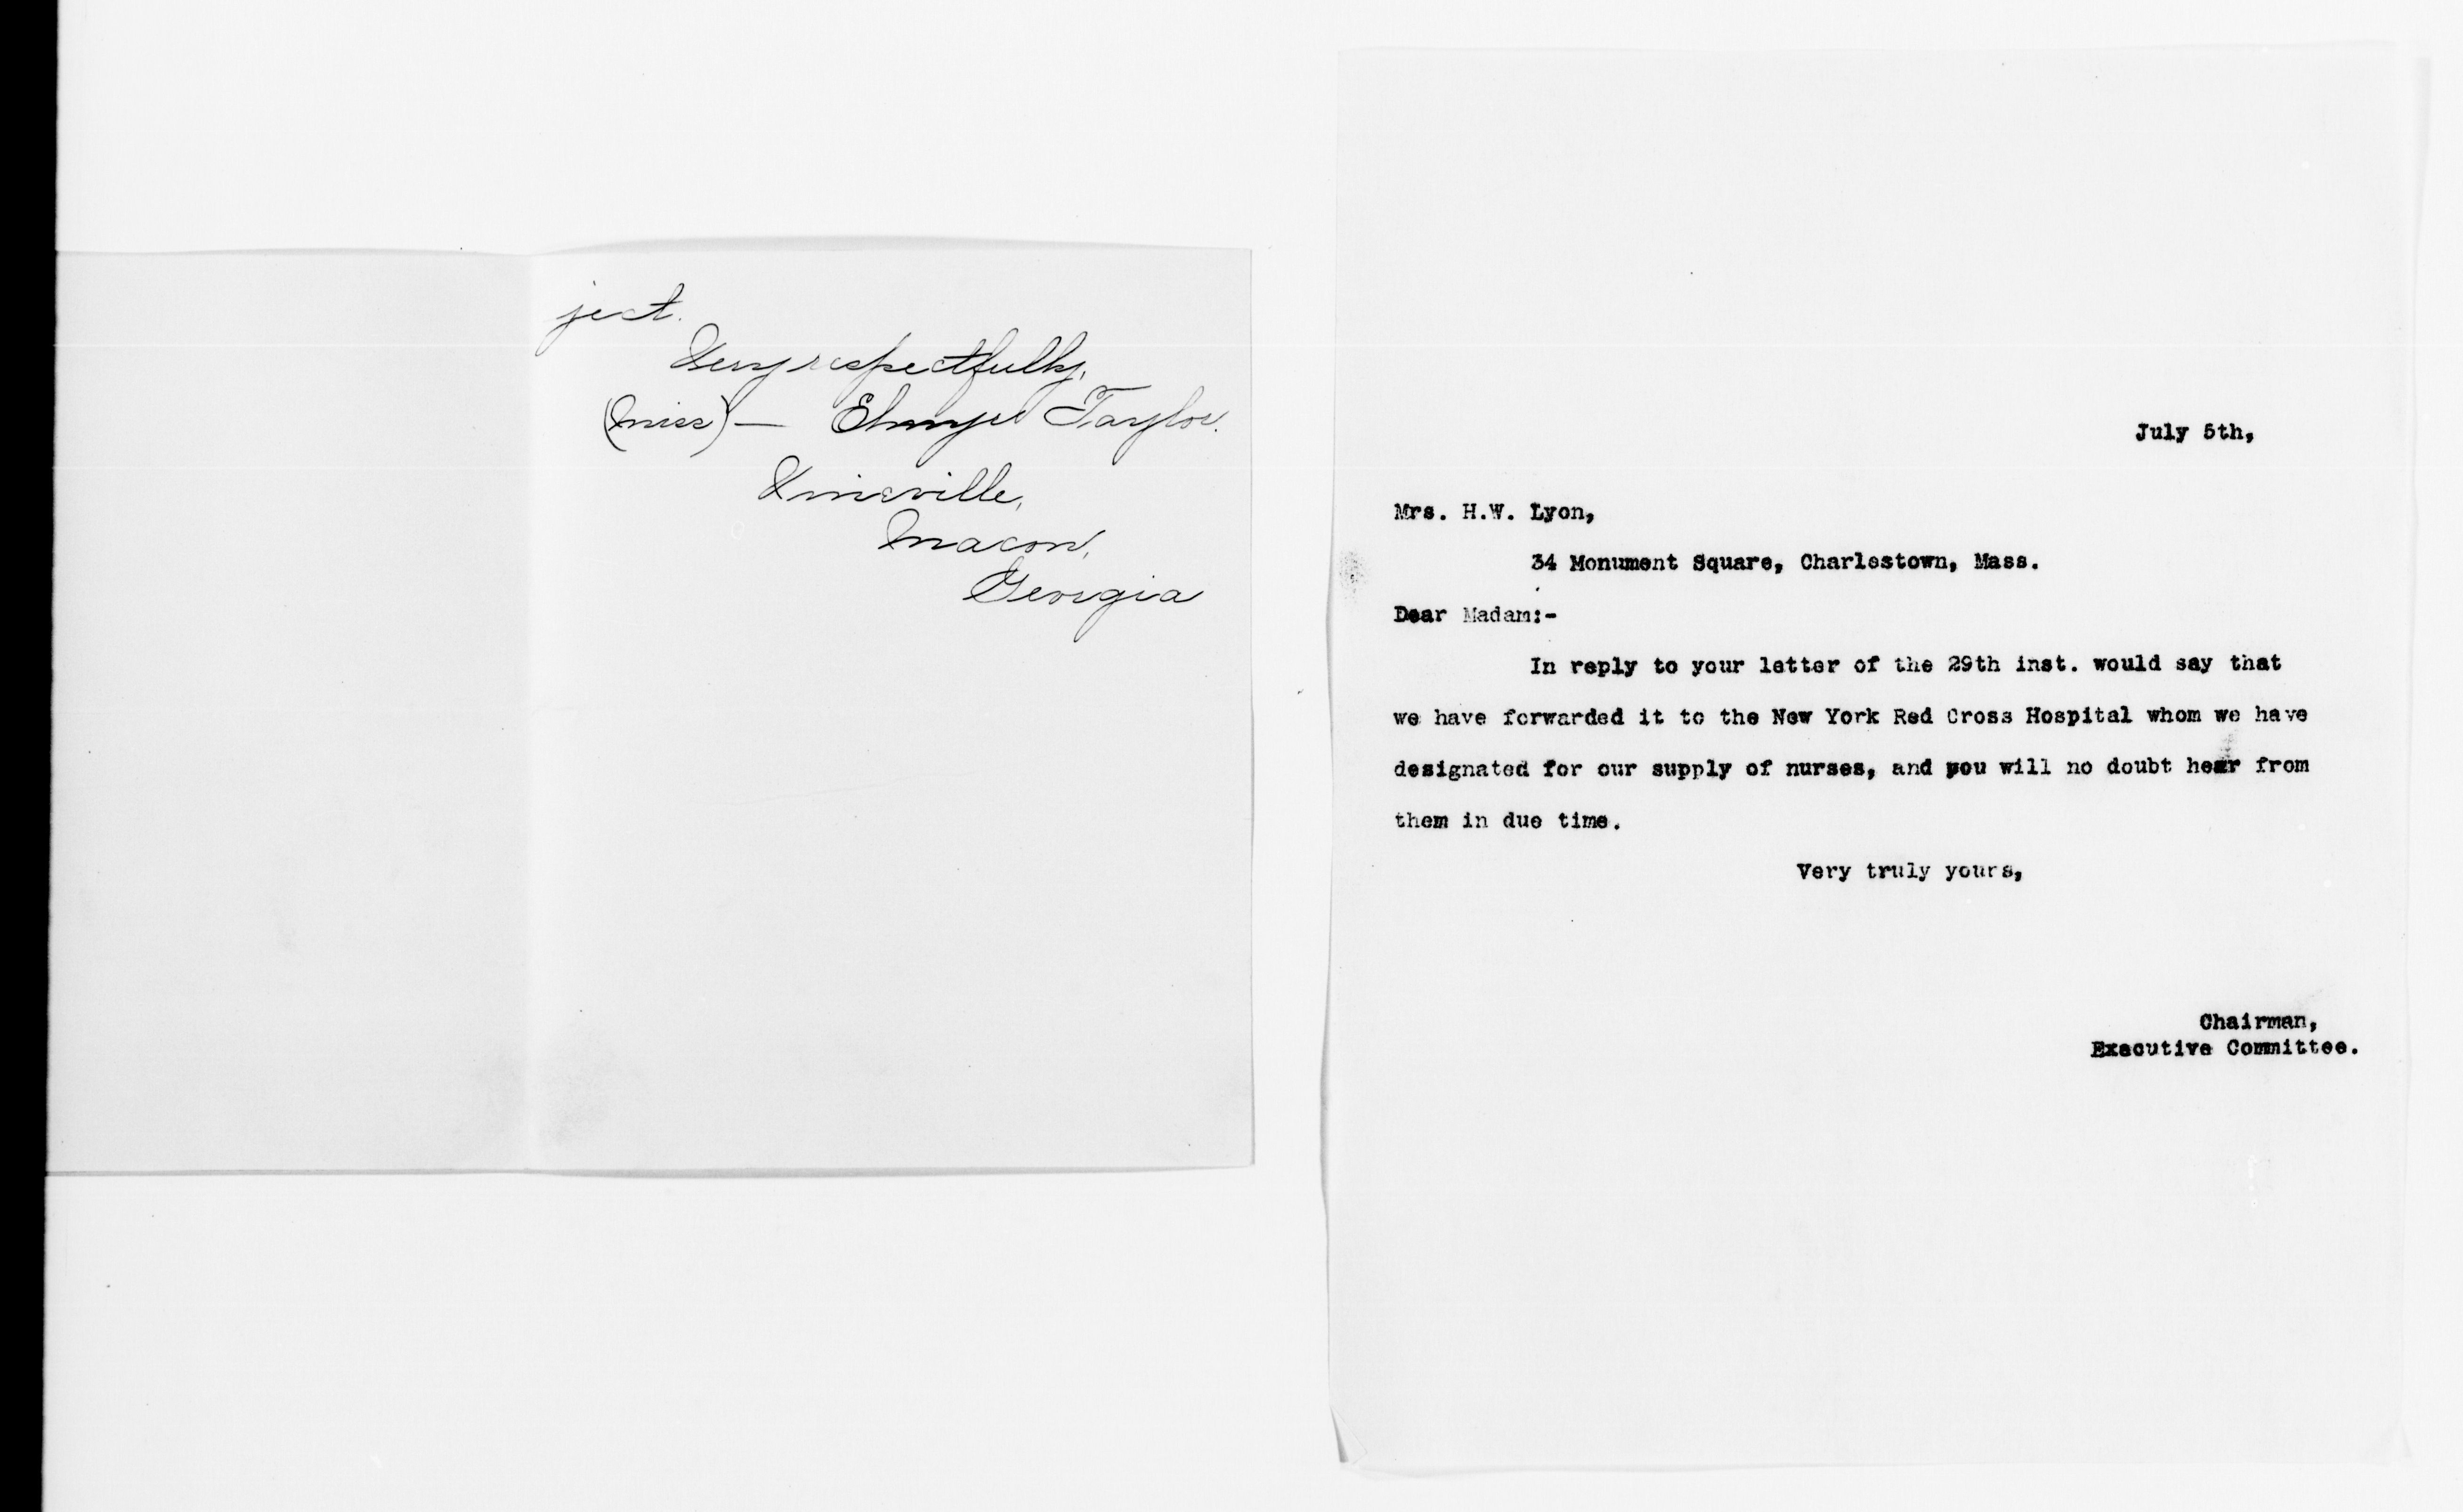 ject.
Very respectfully,
(Miss) — Taylor.
Vineville,
Macon,
Georgia
July 5th,
Mrs. H.W. Lyon,
34 Monument Square, Charlestown, Mass.
Dear Madam:-
In reply to your letter of the 29th inst. would say that
we have forwarded it to the New York Red Cross Hospital whom we have
designated for our supply of nurses, and you will no doubt hear from
them in due time.
Very truly yours,
Chairman,
Executive Committee.